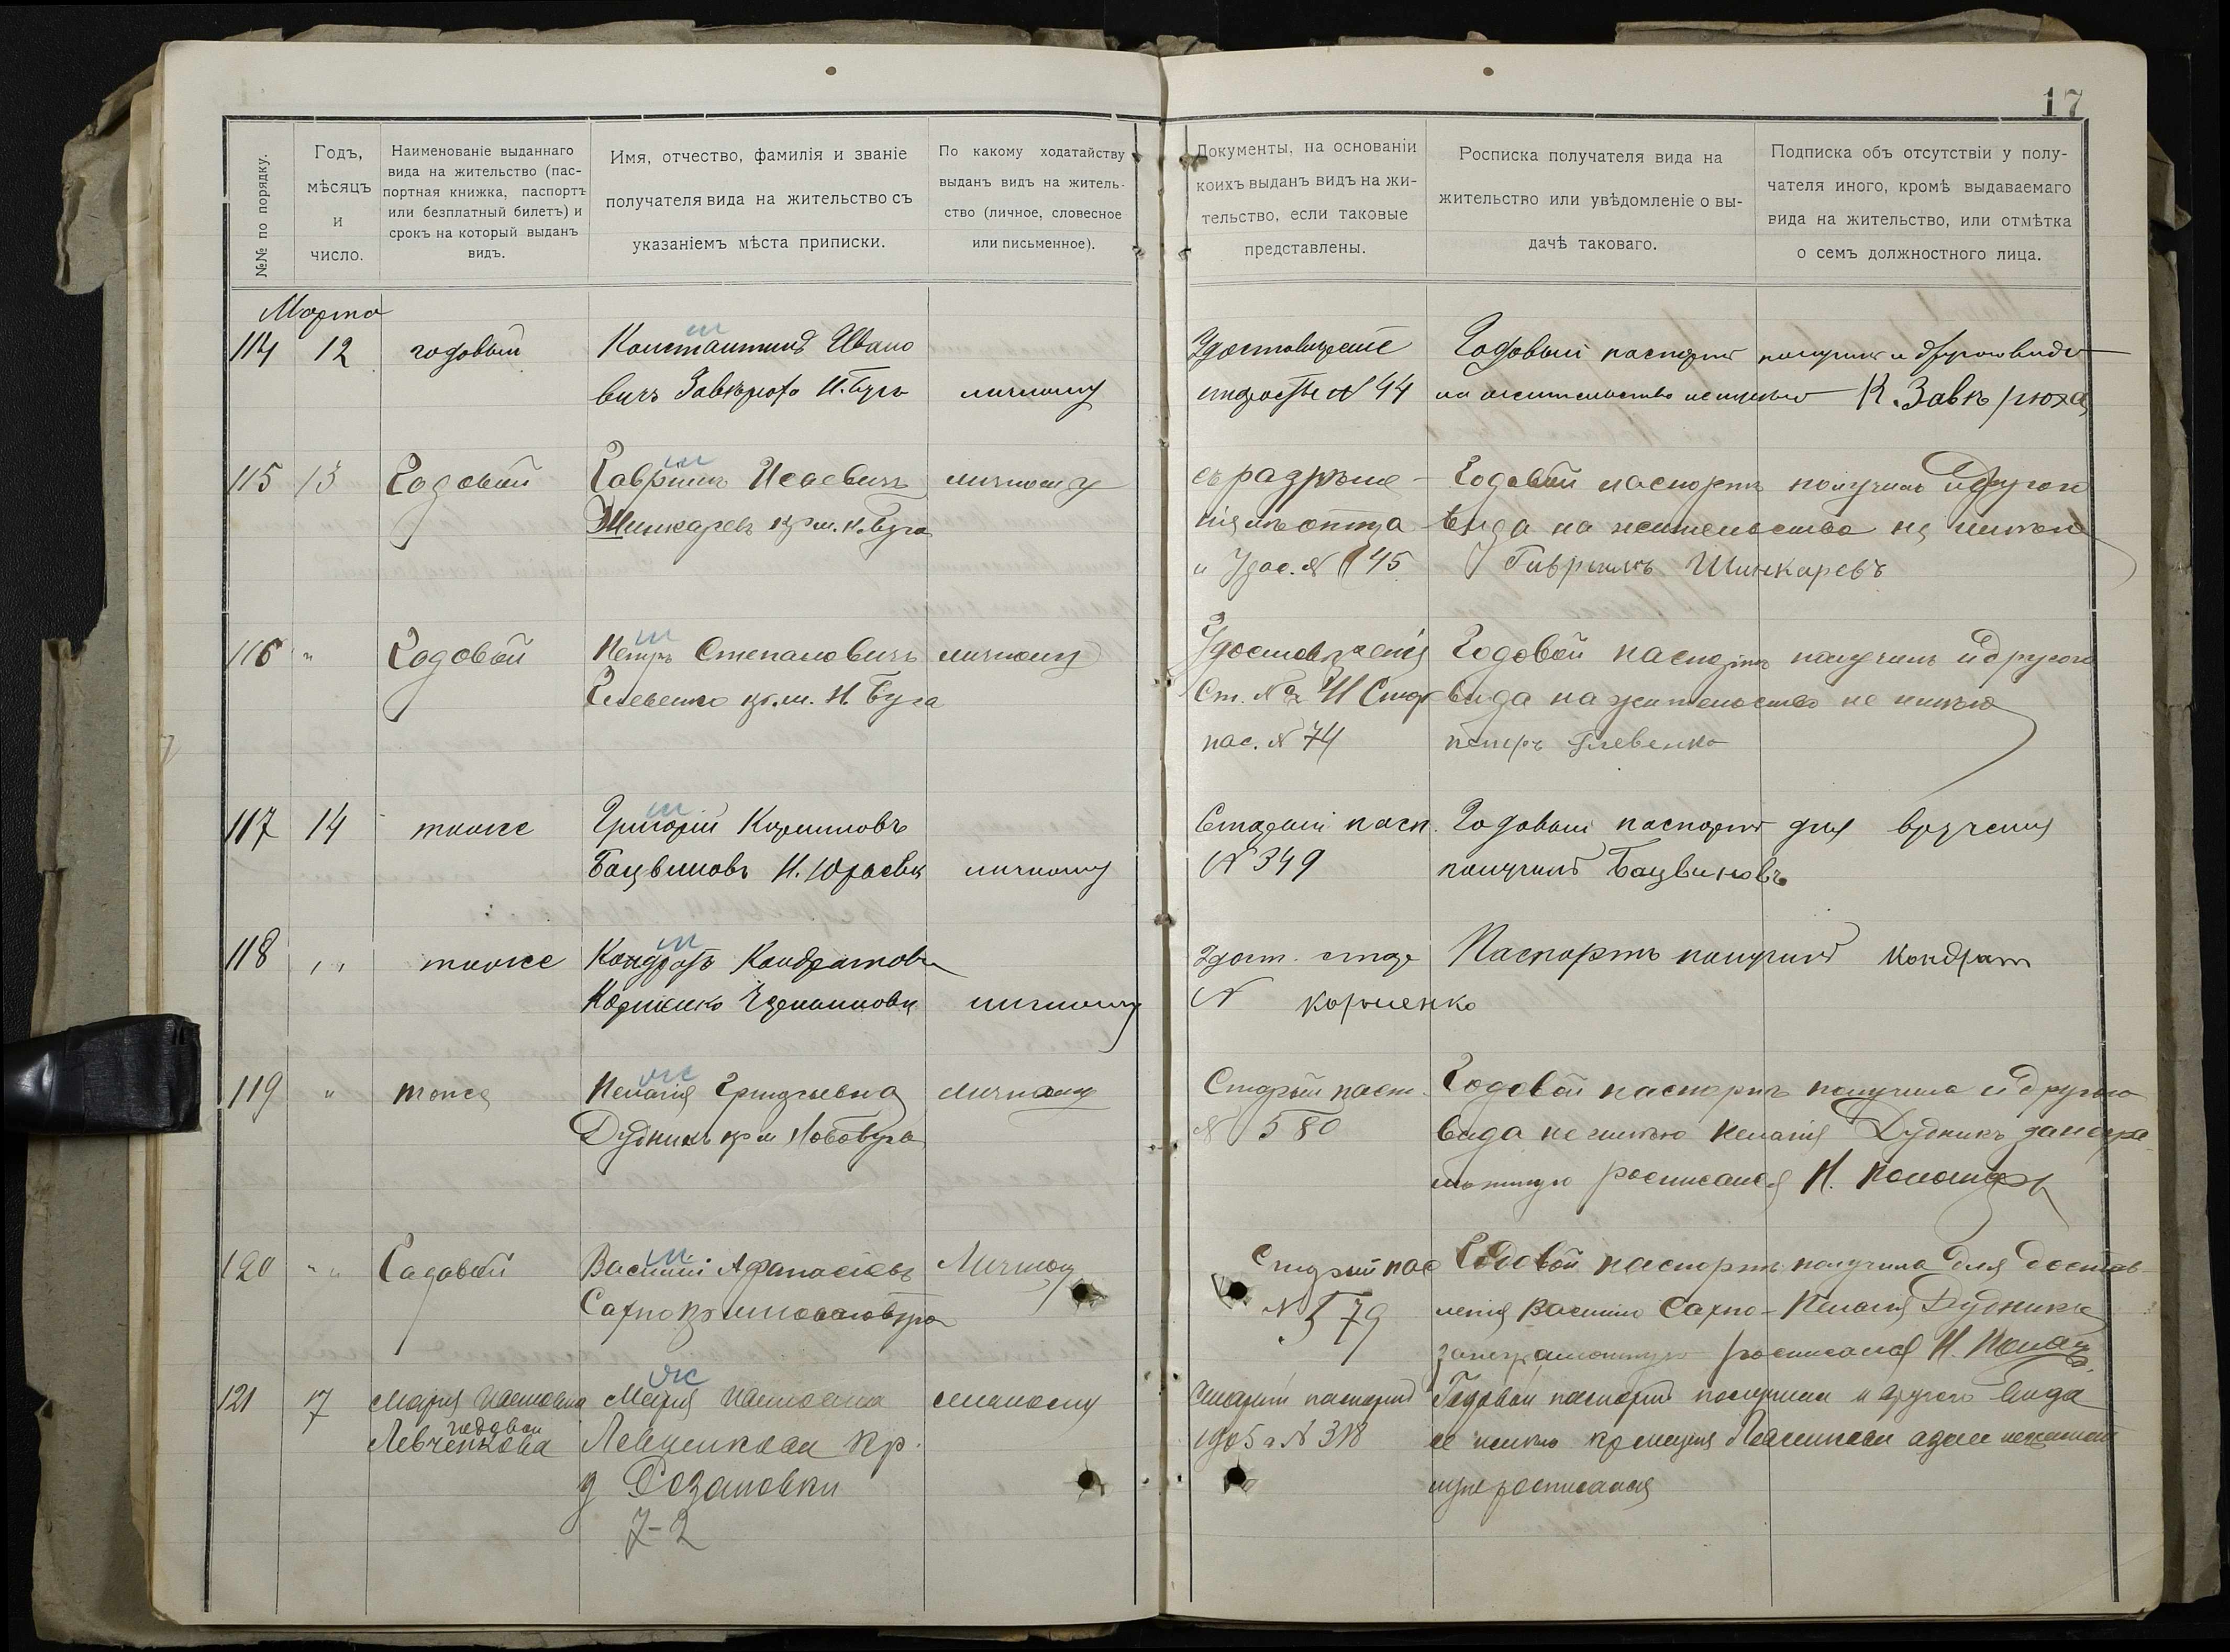 17
№№ по порядку.
Годъ,
мѣсяцъ
и
число.
Наименованіе выданнаго
вида на жительство (пас-
портная книжка, паспортъ
или безплатный билетъ) и
срокъ на который выданъ
видъ.
Имя, отчество, фамилія и званіе
получателя вида на жительство съ
указаніемъ мѣста приписки.
По какому ходатайству
выданъ видъ на житель-
ство (личное, словесное
или письменное).
Документы, на основаніи
коихъ выданъ видъ на жи-
тельство, если таковые
представлены.
Росписка получателя вида на
жительство или увѣдомленіе о вы-
дачѣ таковаго.
Подписка объ отсутствіи у полу-
чателя иного, кромѣ выдаваемаго
вида на жительство, или отмѣтка
о семъ должностного лица.
Марта
114 12 годовый
Константинъ Ивано
вичъ Завкрюха Н. Буга
личному
№ 44
Годовый паспортъ получилъ и другого вида
на жительство не имѣю К. Завкрюха
115 13 Годовой
Гавріилъ Исаевичъ
Шинкаревъ кр. м. Н. Буга
личному
съ разрѣше-
нія отца
и Удос. № 145
Годовой паспортъ получилъ и другого
вида на жительство не имѣю
Гавріилъ Шинкаревъ
116 " Годовой
Петръ Степановичъ
Глевенко кр. м. Н. Буга
личному
Удостовѣренія
пас. № 74
Годовой паспортъ получилъ и другого
вида на жительство не имѣю
Петръ Глевенко
117 14 тоже
Григорій
Бацвиновъ Н. Юрьевки
личному
Старый пасп.
№ 349
Годовый паспортъ для врученія
получилъ Бацвиновъ
118 " тоже
Кондратъ Кондратовъ
личному
Удост. стар
№
Паспортъ получилъ Кондрат
Корменко
119 " тоже
Пелагія Григорьевна
Дудникъ кр. м. Новобуга
личному
Старый пасп.
№ 580
Годовой паспортъ получила и другого
вида не имѣю Пелагія Дудникъ занегра
мотную росписался Н.
120 " Годовой
Василій Афанасіевъ
Сахно кр. м. Новобуга
Личному
Старый пас
№ 579
Годовой паспортъ получила для достав-
ленія Василію Сахно - Пелагія Дудникъ
занеграмотную росписался Н.
121 17
Марія
годовой
Левченкова
Марія
Левченкова кр.
д Розановки
7-2
личному
Старый паспортъ
1905 г № 318
Годовой паспортъ получила и другого вида
не имѣю
росписался